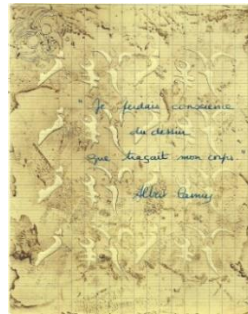 " Je perdais conscience
du dessin
que traçait mon corps "
Albert Camus